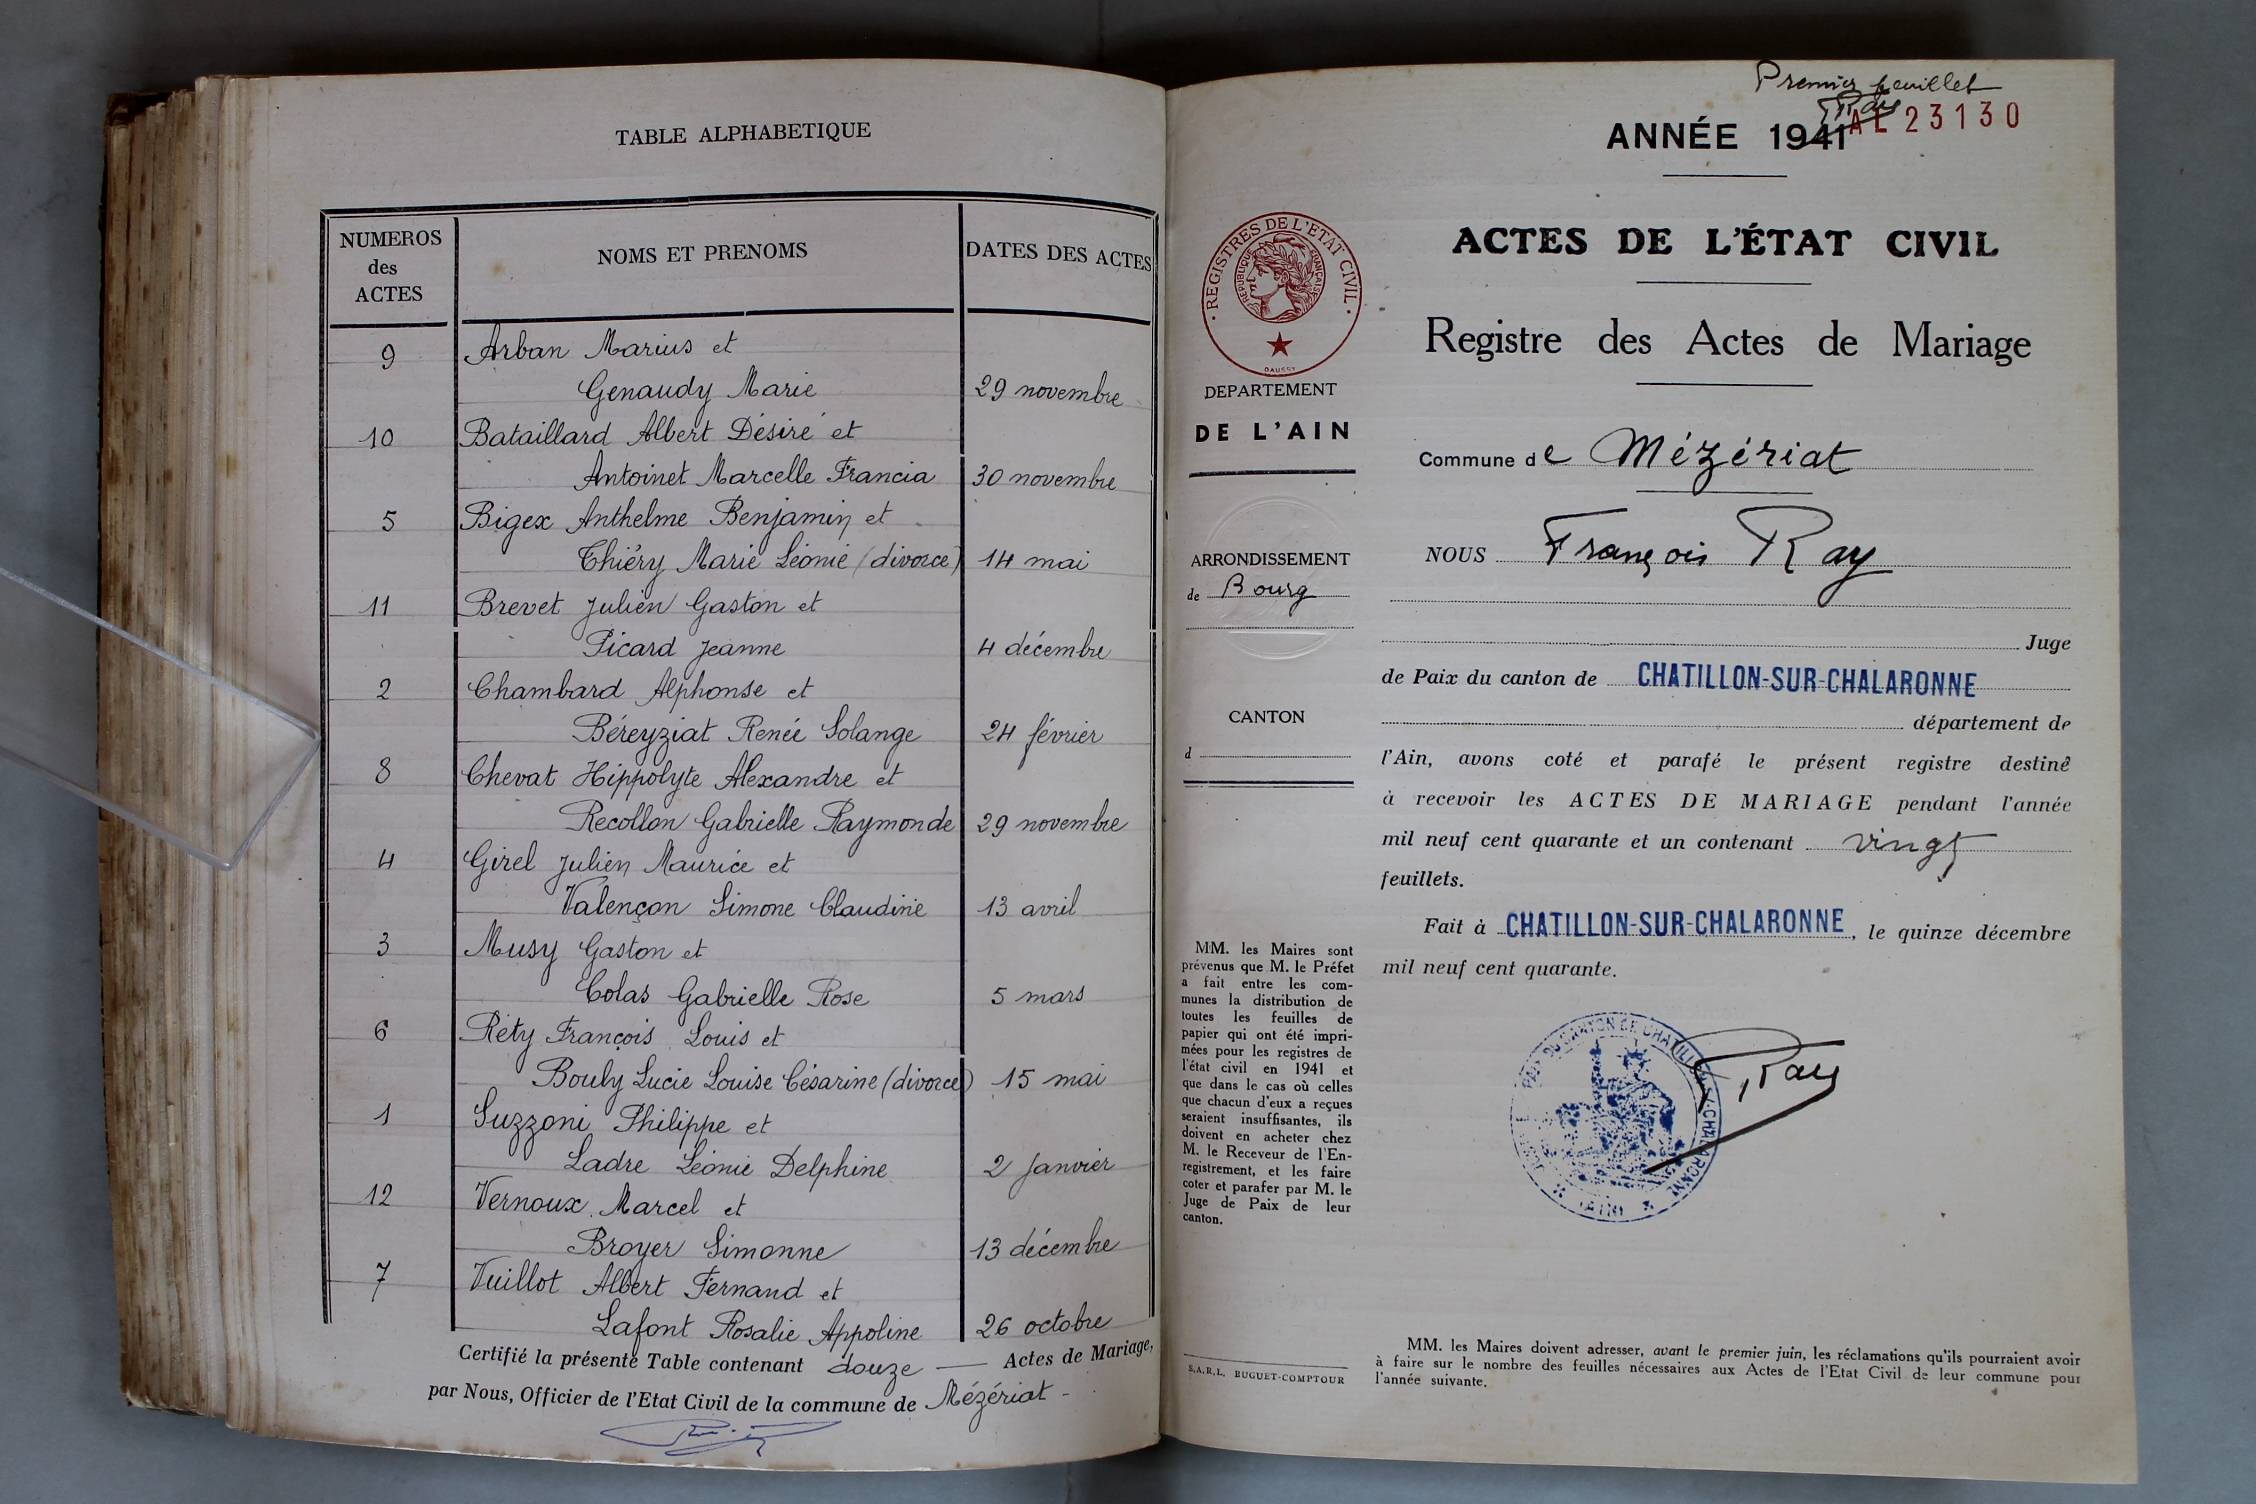 TABLE ALPHABETIQUE
NUMEROS
des
ACTES
NOMS ET PRENOMS
DATES DES ACTES
9 Arban Marius et
Genaudy Marie 29 novembre
10 Bataillard Albert Désiré et
Antoinet Marcelle Francia 30 novembre
5 Bigex Anthelme Benjamin et
Thiéry Marie Léonie (divorce) 14 mai
11 Brevet Julien Gaston et
Picard Jeanne 4 décembre
2 Chambard Alphonse et
Béreyziat Renée Solange 24 février
8 Chevat Hippolyte Alexandre et
Recollon Gabrielle Raymonde 29 novembre
4 Girel Julien Maurice et
Valençon Simone Claudine 13 avril
3 Musy Gaston et
Colas Gabrielle Rose 5 mars
6 Réty François Louis et
Bouly Lucie Louise Césarine (divorce) 15 mai
1 Suzzoni Philippe et
Ladre Léonie Delphine 2 Janvier
12 Vernoux Marcel et
Broyer Simonne 13 décembre
7 Vuillot Albert Fernand et
Lafont Rosalie Appoline 26 octobre
Certifié la présente Table contenant douze — Actes de Mariage,
par Nous, Officier de l'Etat Civil de la commune de Mézériat -
Premier feuillet
Ray
ANNÉE 1941 AL 23130
REGISTRES DE L'ETAT CIVIL
REPUBLIQUE FRANÇAISE
DAUSSY
DEPARTEMENT
DE L'AIN
ARRONDISSEMENT
de Bourg
CANTON
d
MM. les Maires sont
prévenus que M. le Préfet
a fait entre les com-
munes la distribution de
toutes les feuilles de
papier qui ont été impri-
mées pour les registres de
l'état civil en 1941 et
que dans le cas où celles
que chacun d'eux a reçues
seraient insuffisantes, ils
doivent en acheter chez
M. le Receveur de l'En-
registrement, et les faire
coter et parafer par M. le
Juge de Paix de leur
canton.
S.A.R.L. BUGUET-COMPTOUR
ACTES DE L'ÉTAT CIVIL
Registre des Actes de Mariage
Commune de Mézériat
NOUS François Ray
Juge
de Paix du canton de CHATILLON-SUR-CHALARONNE
département de
l'Ain, avons coté et parafé le présent registre destiné
à recevoir les ACTES DE MARIAGE pendant l'année
mil neuf cent quarante et un contenant vingt
feuillets.
Fait à CHATILLON-SUR-CHALARONNE, le quinze décembre
mil neuf cent quarante.
PAIX DU CANTON DE CHATILLON-S-CHALARONNE
(AIN)
Ray
MM. les Maires doivent adresser, avant le premier juin, les réclamations qu'ils pourraient avoir
à faire sur le nombre des feuilles nécessaires aux Actes de l'Etat Civil de leur commune pour
l'année suivante.